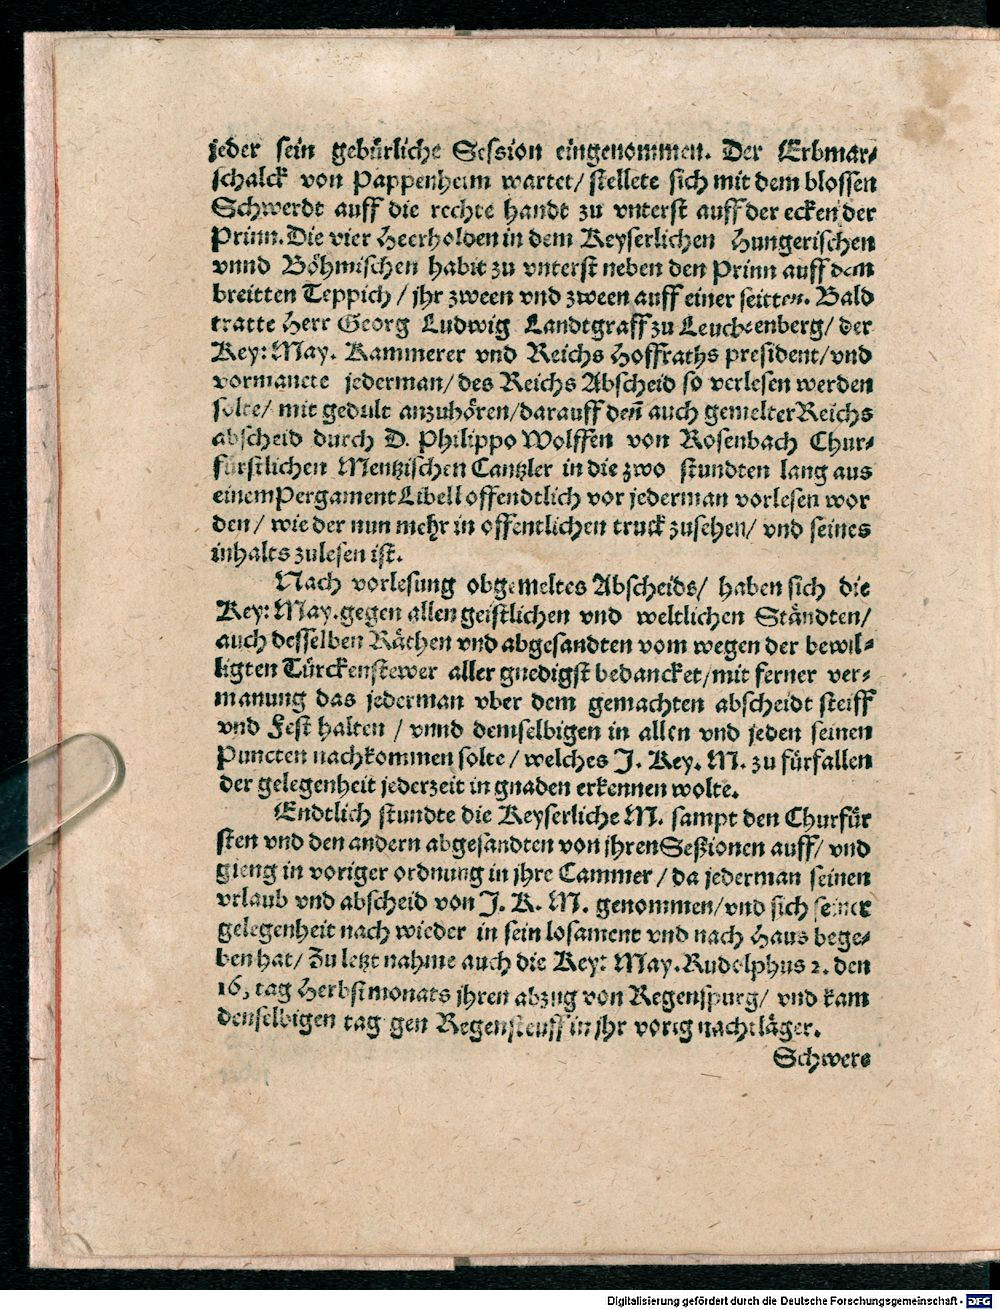 jeder sein gebürliche Session eingenommen. Der Erbmar⸗
schalck von Pappenheim wartet/ stellete sich mit dem blossen
Schwerdt auff die rechte handt zu vnterst auff der ecken der
Prinn. Die vier Heerholden in dem Keyserlichen Hungerischen
vnnd Böhmischen habit zu vnterst neben den Prinn auff dem
breitten Teppich / jhr zween vnd zween auff einer seitten. Bald
tratte Herr Georg Ludwig Landtgraff zu Leuchtenberg/ der
Key: May. Kammerer vnd Reichs Hoffraths president/ vnd
vormanete jederman/ des Reichs Abscheid so verlesen werden
solte/ mit gedult anzuhören/ darauff deñ auch gemelter Reichs
abscheid durch D. Philippo Wolffen von Rosenbach Chur⸗
fürstlichen Mentzischen Cantzler in die zwo stundten lang aus
einem Pergament Libell offendtlich vor jederman vorlesen wor
den / wie der nun mehr in offentlichen truck zusehen/ vnd seines
inhalts zulesen ist.
Nach vorlesung obgemeltes Abscheids/ haben sich die
Key: May. gegen allen geistlichen vnd weltlichen Ständten/
auch desselben Räthen vnd abgesandten vom wegen der bewil⸗
ligten Türckenstewer aller gnedigst bedancket/ mit ferner ver⸗
manung das jederman vber dem gemachten abscheidt steiff
vnd Fest halten / vnnd demselbigen in allen vnd jeden seinen
Puncten nachkommen solte / welches J. Key. M. zu fürfallen
der gelegenheit jederzeit in gnaden erkennen wolte.
Endtlich stundte die Keyserliche M. sampt den Churfür
sten vnd den andern abgesandten von jhren Seßionen auff/ vnd
gieng in voriger ordnung in jhre Cammer / da jederman seinen
vrlaub vnd abscheid von J. K. M. genommen/ vnd sich seiner
gelegenheit nach wieder in sein losament vnd nach Haus bege⸗
ben hat/ Zu letzt nahme auch die Key: May. Rudolphus 2. den
16, tag Herbstmonats jhren abzug von Regenspurg/ vnd kam
denselbigen tag gen Regensteuff in jhr vorig nachtläger.
Schwere
Digitalisierung gefördert durch die Deutsche Forschungsgemeinschaft - DFG